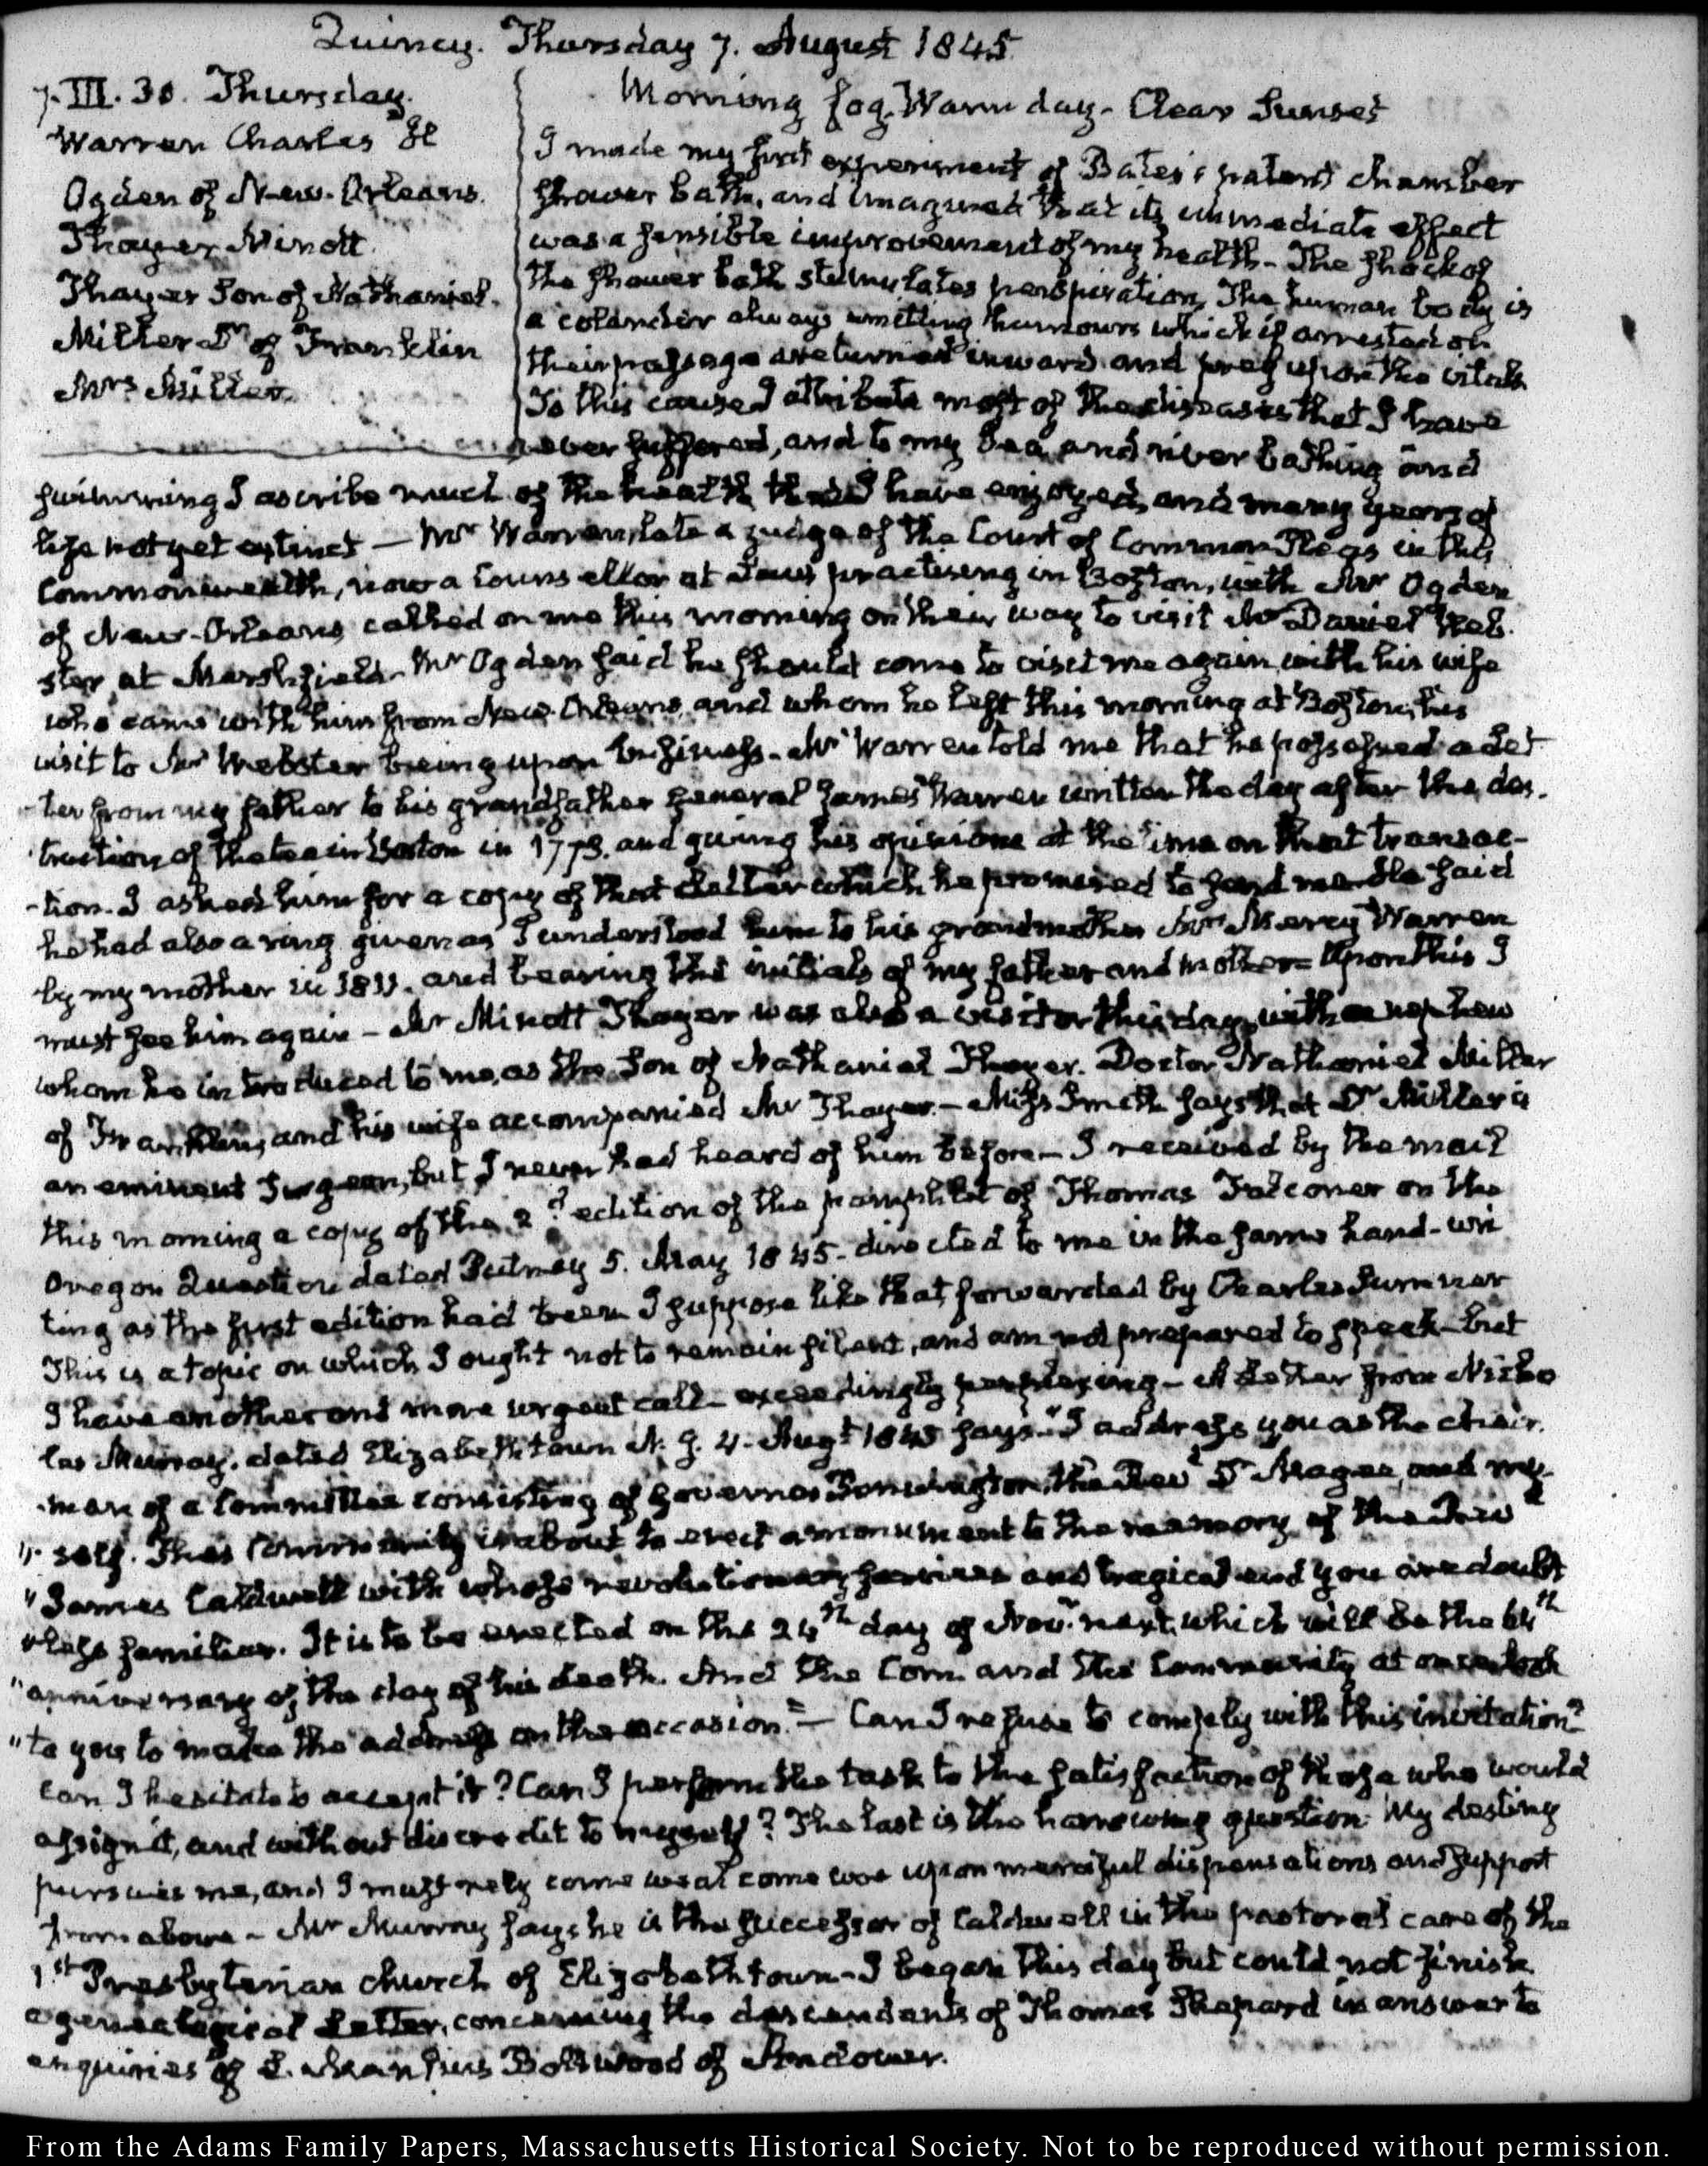 Quincy. Thursday 7. August 1845.
7. III. 30. Thursday.
Warren Charles H
Ogden of New-Orleans.
Thayer Minott
Thayer Son of Nathaniel.
Miller Dr of Franklin
Mrs Miller
Morning fog. Warm day. Clear Sunset
I made my first experiment of Bates's patent chamber
shower bath, and imagined that its immediate effect
was a sensible improvement of my health. The shock of
the shower bath stimulates perspiration. The human body is
a colander always emitting humours which if arrested on
their passage are turned inward and prey upon the vitals.
To this cause I attribute most of the diseases that I have
ever suffered, and to my sea and river bathing and
swimming I ascribe much of the health that I have enjoyed, and many years of
life not yet extinct — Mr Warren, late a judge of the Court of Common Pleas in this
Commonwealth, now a Counsellor at Law practising in Boston, with Mr Ogden
of New-Orleans called on me this morning on their way to visit Mr Daniel Web-
ster at Marshfield. Mr Ogden said he should come to visit me again with his wife
who came with him from New Orleans, and whom he left this morning at Boston, his
visit to Mr Webster being upon business. Mr Warren told me that he possessed a Let-
-ter from my father to his grandfather General James Warren written the day after the des-
truction of the tea in Boston in 1773. and giving his opinions at the time on that transac-
-tion. I asked him for a copy of that Letter which he promised to send me. He said
he had also a ring given as I understood him to his grandmother Mrs Mercy Warren
by my mother in 1811. and bearing the initials of my father and mother— Upon this I
must see him again — Mr Minott Thayer was also a visitor this day, with a nephew
whom he introduced to me, as the Son of Nathaniel Thayer. Doctor Nathaniel Miller
of Franklin, and his wife accompanied Mr Thayer. — Miss Smith says that Dr Miller is
an eminent Surgeon, but I never had heard of him before — I received by the mail
this morning a copy of the 2d edition of the pamphlet of Thomas Falconer on the
Oregon Question dated Putney 5. May 1845. directed to me in the same hand-wri
ting as the first edition had been I suppose like that forwarded by Charles Sumner
This is a topic on which I ought not to remain silent, and am not prepared to speak — but
I have another and more urgent call — exceedingly perplexing — A Letter from Nicho
las Murray. dated Elizabethtown N. J. 4. Augt 1845 says "I address you as the chair-
-man of a Committee consisting of Governor Pennington, the Revd Dr Magee, and my-
"self. This Community is about to erect a monument to the memory of the Revd
"James Caldwell with whose revolutionary services and tragical end you are doubt
"less familiar. It is to be erected on the 24th day of Novr next, which will be the 64th
"anniversary of the day of his death. And the Com. and the Community at once look
"to you to make the address on the occasion." — Can I refuse to comply with this invitation?
can I hesitate to accept it? Can I perform the task to the satisfaction of those who would
assign it, and without discredit to myself? The last is the harrowing question. My destiny
pursues me, and I must rely come weal come woe upon merciful dispensations and support
from above — Mr Murray says he is the successor of Caldwell in the pastoral care of the
1st Presbyterian church of Elizabethtown — I began this day but could not finish
a genealogical Letter, concerning the descendants of Thomas Shepard in answer to
enquiries of Boltwood of Andover.
From the Adams Family Papers, Massachusetts Historical Society. Not to be reproduced without permission.